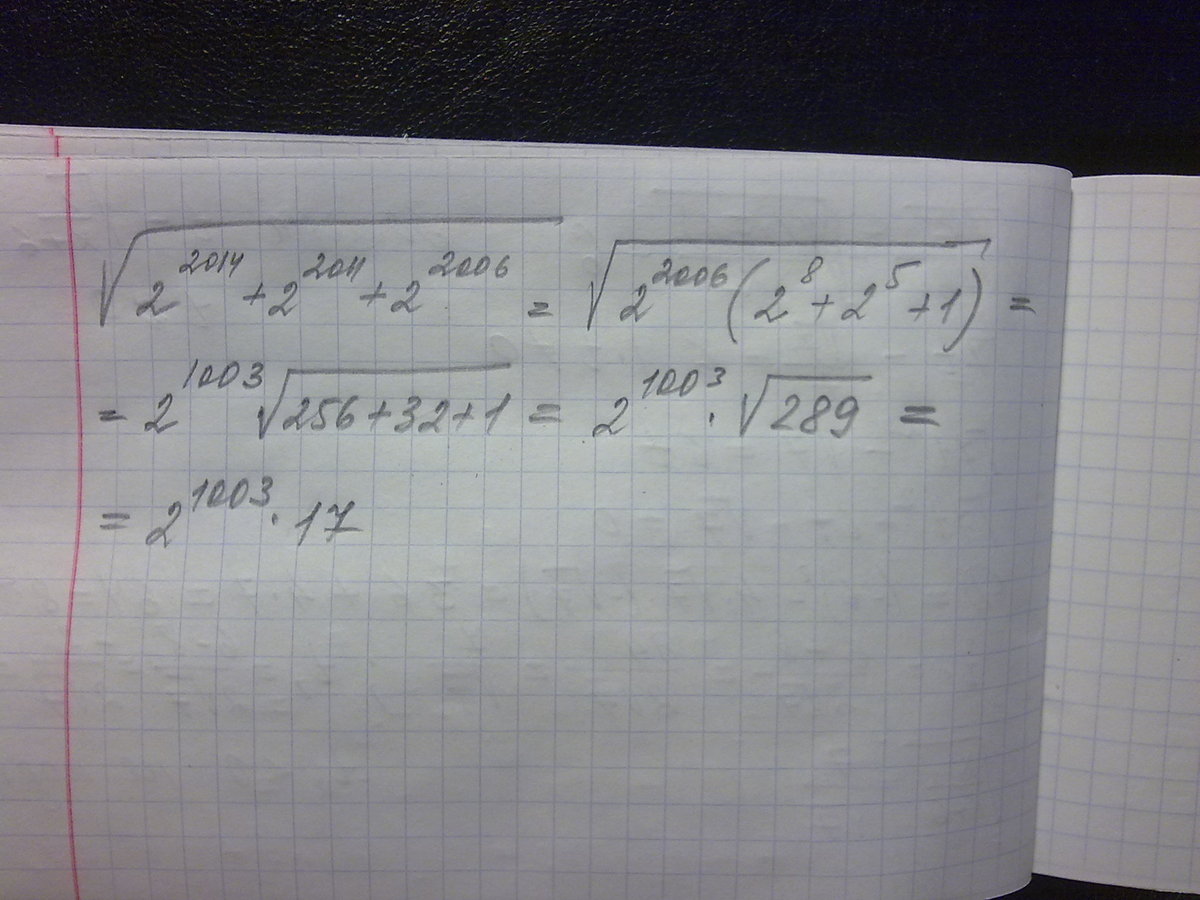 √(2^2014 + 2^2011 + 2^2006) = √(2^2006 (2^8 + 2^5 + 1)) =
= 2^1003 √(256 + 32 + 1) = 2^1003 · √289 =
= 2^1003 · 17